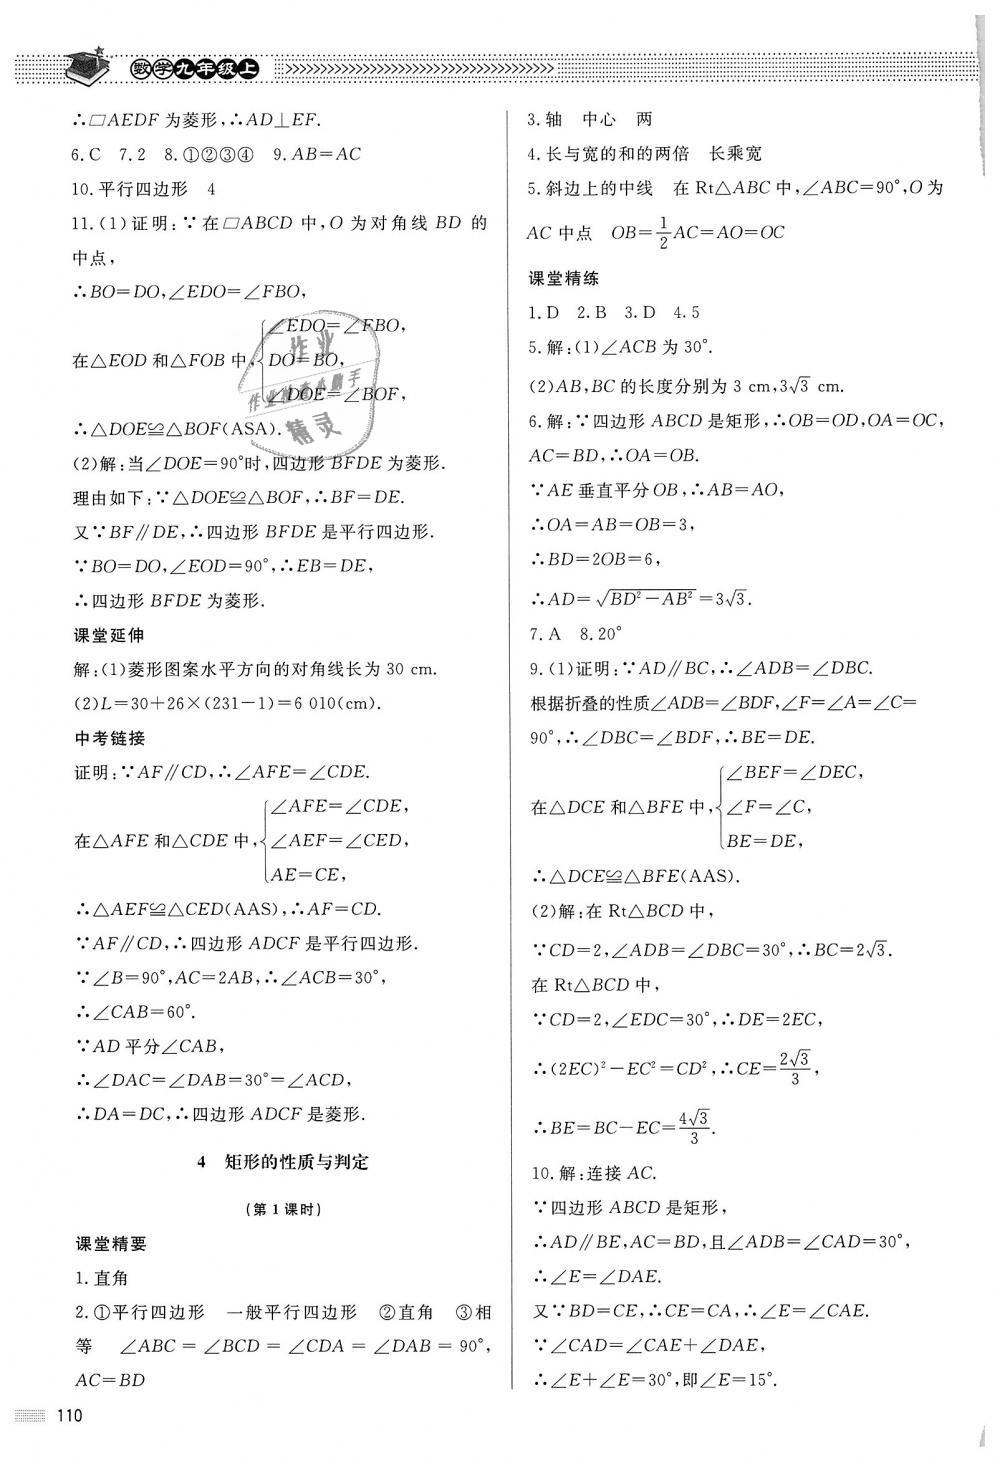 数学九年级上
∴□AEDF为菱形,∴AD⊥EF.
6.C 7.2 8.①②③④ 9.AB=AC
10.平行四边形 4
11.(1)证明:∵在□ABCD中,O为对角线BD的
中点,
∴BO=DO,∠EDO=∠FBO,
∠EDO=∠FBO,
在△EOD和△FOB中,DO=BO,
∠DOE=∠BOF,
∴△DOE≌△BOF(ASA).
(2)解:当∠DOE=90°时,四边形BFDE为菱形.
理由如下:∵△DOE≌△BOF,∴BF=DE.
又∵BF∥DE,∴四边形BFDE是平行四边形.
∵BO=DO,∠EOD=90°,∴EB=DE,
∴四边形BFDE为菱形.
课堂延伸
解:(1)菱形图案水平方向的对角线长为30 cm.
(2)L=30+26×(231-1)=6 010(cm).
中考链接
证明:∵AF∥CD,∴∠AFE=∠CDE.
∠AFE=∠CDE,
在△AFE和△CDE中,∠AEF=∠CED,
AE=CE,
∴△AEF≌△CED(AAS),∴AF=CD.
∵AF∥CD,∴四边形ADCF是平行四边形.
∵∠B=90°,AC=2AB,∴∠ACB=30°,
∴∠CAB=60°.
∵AD平分∠CAB,
∴∠DAC=∠DAB=30°=∠ACD,
∴DA=DC,∴四边形ADCF是菱形.
4 矩形的性质与判定
(第1课时)
课堂精要
1.直角
2.①平行四边形 一般平行四边形 ②直角 ③相
等 ∠ABC=∠BCD=∠CDA=∠DAB=90°,
AC=BD
3.轴 中心 两
4.长与宽的和的两倍 长乘宽
5.斜边上的中线 在Rt△ABC中,∠ABC=90°,O为
AC中点 OB=1/2AC=AO=OC
课堂精练
1.D 2.B 3.D 4.5
5.解:(1)∠ACB为30°.
(2)AB,BC的长度分别为3 cm,3√3 cm.
6.解:∵四边形ABCD是矩形,∴OB=OD,OA=OC,
AC=BD,∴OA=OB.
∵AE垂直平分OB,∴AB=AO,
∴OA=AB=OB=3,
∴BD=2OB=6,
∴AD=√(BD²-AB²)=3√3.
7.A 8.20°
9.(1)证明:∵AD∥BC,∴∠ADB=∠DBC.
根据折叠的性质∠ADB=∠BDF,∠F=∠A=∠C=
90°,∴∠DBC=∠BDF,∴BE=DE.
∠BEF=∠DEC,
在△DCE和△BFE中,∠F=∠C,
BE=DE,
∴△DCE≌△BFE(AAS).
(2)解:在Rt△BCD中,
∵CD=2,∠ADB=∠DBC=30°,∴BC=2√3.
在Rt△BCD中,
∵CD=2,∠EDC=30°,∴DE=2EC,
∴(2EC)²-EC²=CD²,∴CE=2√3/3,
∴BE=BC-EC=4√3/3.
10.解:连接AC.
∵四边形ABCD是矩形,
∴AD∥BE,AC=BD,且∠ADB=∠CAD=30°,
∴∠E=∠DAE.
又∵BD=CE,∴CE=CA,∴∠E=∠CAE.
∵∠CAD=∠CAE+∠DAE,
∴∠E+∠E=30°,即∠E=15°.
110
作业
作业检查小助手
精灵